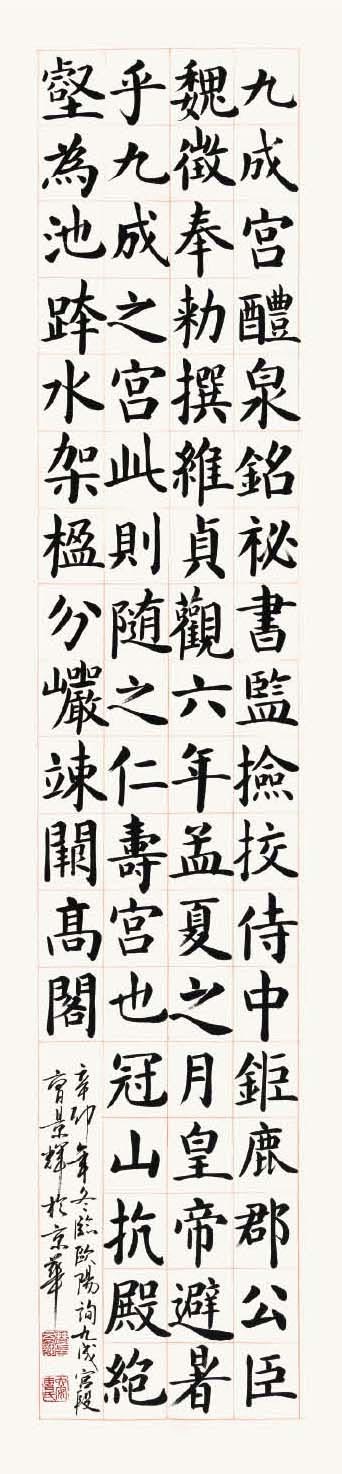 九成宮醴泉銘祕書監撿挍侍中鉅鹿郡公臣
魏徵奉勑撰維貞觀六年孟夏之月皇帝避暑
乎九成之宮此則随之仁壽宮也冠山抗殿絶
壑為池跨水架楹分巖竦闕髙閣
辛卯年冬臨歐陽詢九成宮段
曹景輝於京華